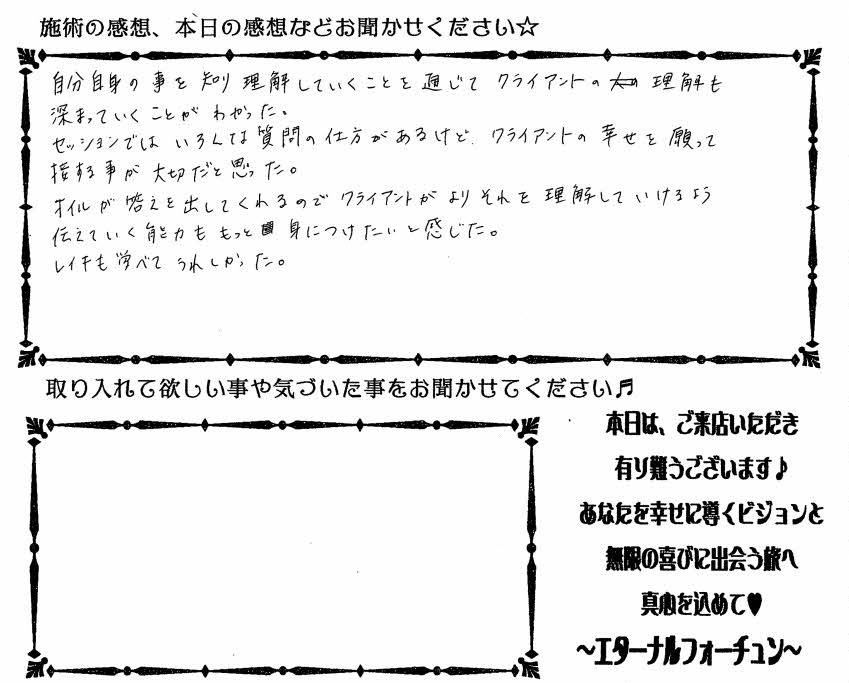 施術の感想、本日の感想などお聞かせください☆
自分自身の事を知り理解していくことを通じてクライアントの理解も
深まっていくことがわかった。
セッションではいろんな質問の仕方があるけど、クライアントの幸せを願って
接する事が大切だと思った。
オイルが答えを出してくれるのでクライアントがよりそれを理解していけるよう
伝えていく能力ももっと身につけたいと感じた。
レイキも学べてうれしかった。
取り入れて欲しい事や気づいた事をお聞かせてください♬
本日は、ご来店いただき
有り難うございます♪
あなたを幸せに導くビジョンと
無限の喜びに出会う旅へ
真心を込めて♥
~エターナルフォーチュン~